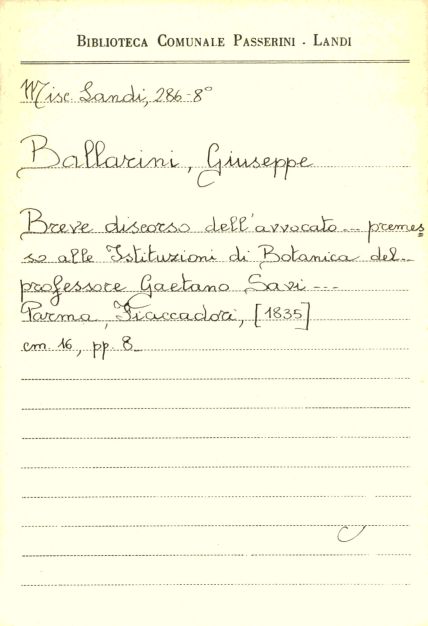 BIBLIOTECA COMUNALE PASSERINI - LANDI
Misc. Landi, 286-8°
Ballarini, Giuseppe
Breve discorso dell'avvocato... premes
so alle Istituzioni di Botanica del...
professore Gaetano Savi ---
Parma, Fiaccadori, [1835]
cm. 16, pp. 8_